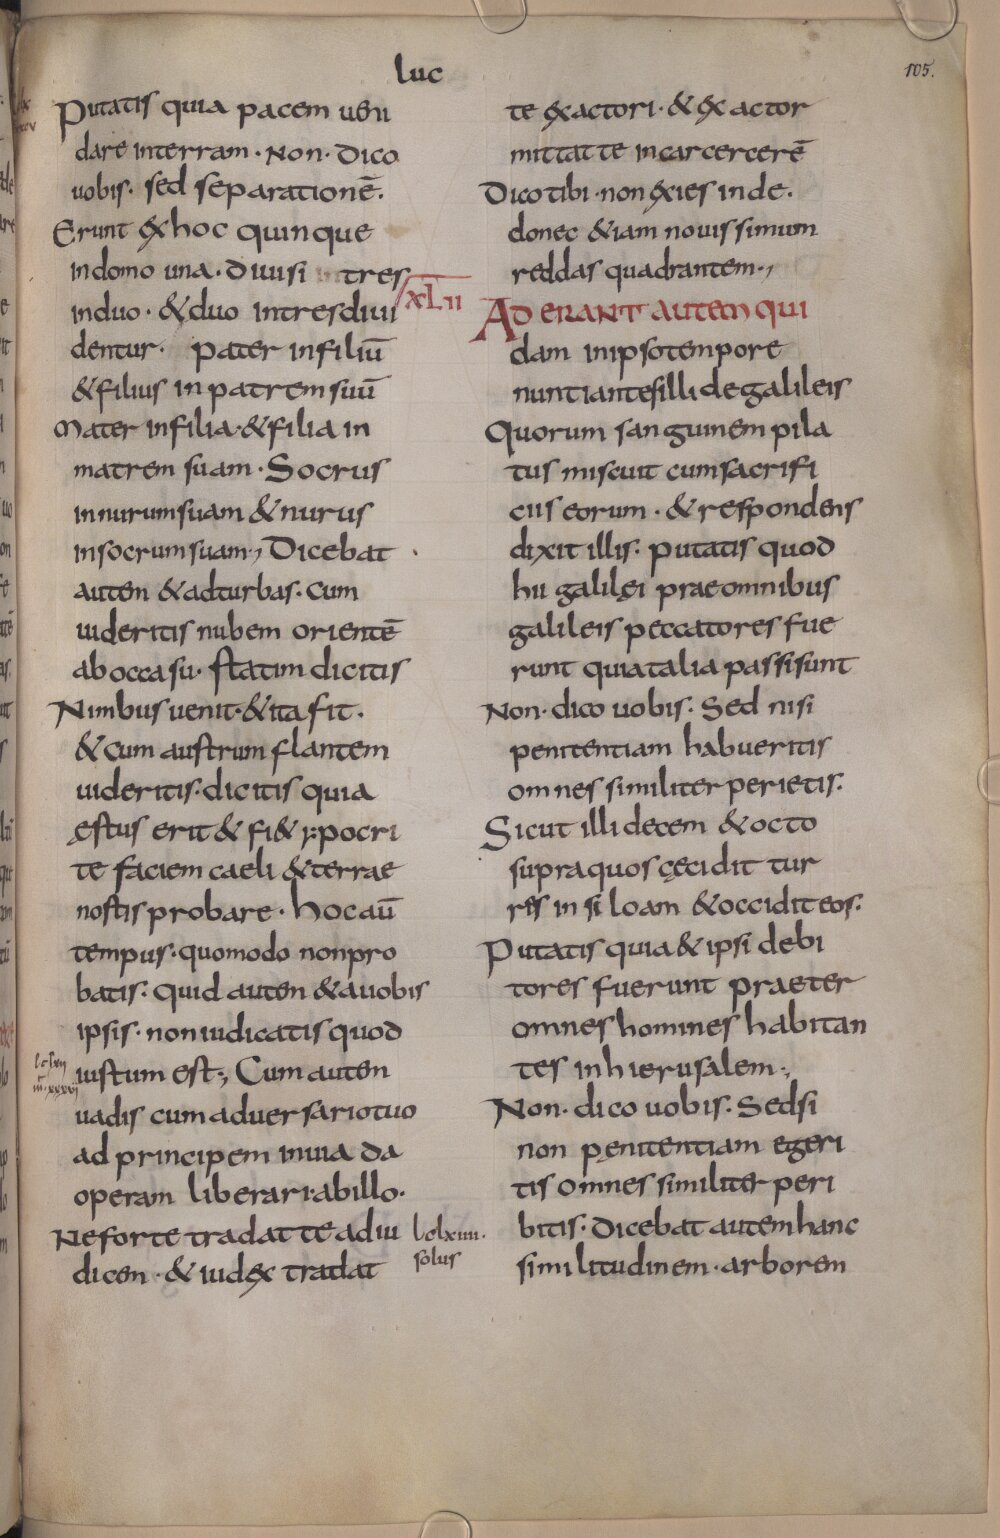 luc
105.
Putatis quia pacem ueni
dare interram · Non · dico
uobis · sed separationē.
Erunt exhoc quinque
indomo una · diuisi tres
induo · & duo intresdiui
dentur · pater infiliū
& filius in patrem suū
Mater infilia · & filia in
matrem suam · Socrus
innurumsuam & nurus
insocrumsuam ; Dicebat
autem & adturbas · Cum
uideritis nubem orientē
aboccasu · statim dicitis
Nimbus uenit · & ita fit ·
& cum austrum flantem
uideritis · dicitis quia
ęstus erit & fi& ypocri
te faciem caeli & terrae
nostis probare · hocaū
tempus · quomodo nonpro
batis · Quid autem & auobis
ipsis · noniudicatis quod
iustum est ; Cum autem
uadis cum aduersariotuo
ad principem inuia da
operam liberari · abillo ·
Neforte tradat te adiu
dicem · & iudex tradat
lclxiii.
solus
te exactori · & exactor
mittat te incarcercerē
Dico tibi · non exies inde ·
donec & iam nouissimum
reddas quadrantem ;
XLII
AD ERANT autem qui
dam inipsotempore
nuntiantesilli degalileis
Quorum sanguinem pila
tus miscuit cumsacrifi
ciis eorum · & respondens
dixit illis · putatis quod
hii galilęi praeomnibus
galileis peccatores fue
runt quia talia passisunt
Non · dico uobis · Sed nisi
penitentiam habueritis
omnes similiter perietis ·
Sicut illi decem & octo
supraquos cęcidit tur
ris in siloam & occidit eos ·
Putatis quia & ipsi debi
tores fuerunt praeter
omnes homines habitan
tes inhierusalem ;
Non · dico uobis · Sedsi
non penitentiam egeri
tis omnes similiter peri
bitis · Dicebat autem hanc
similitudinem · arborem